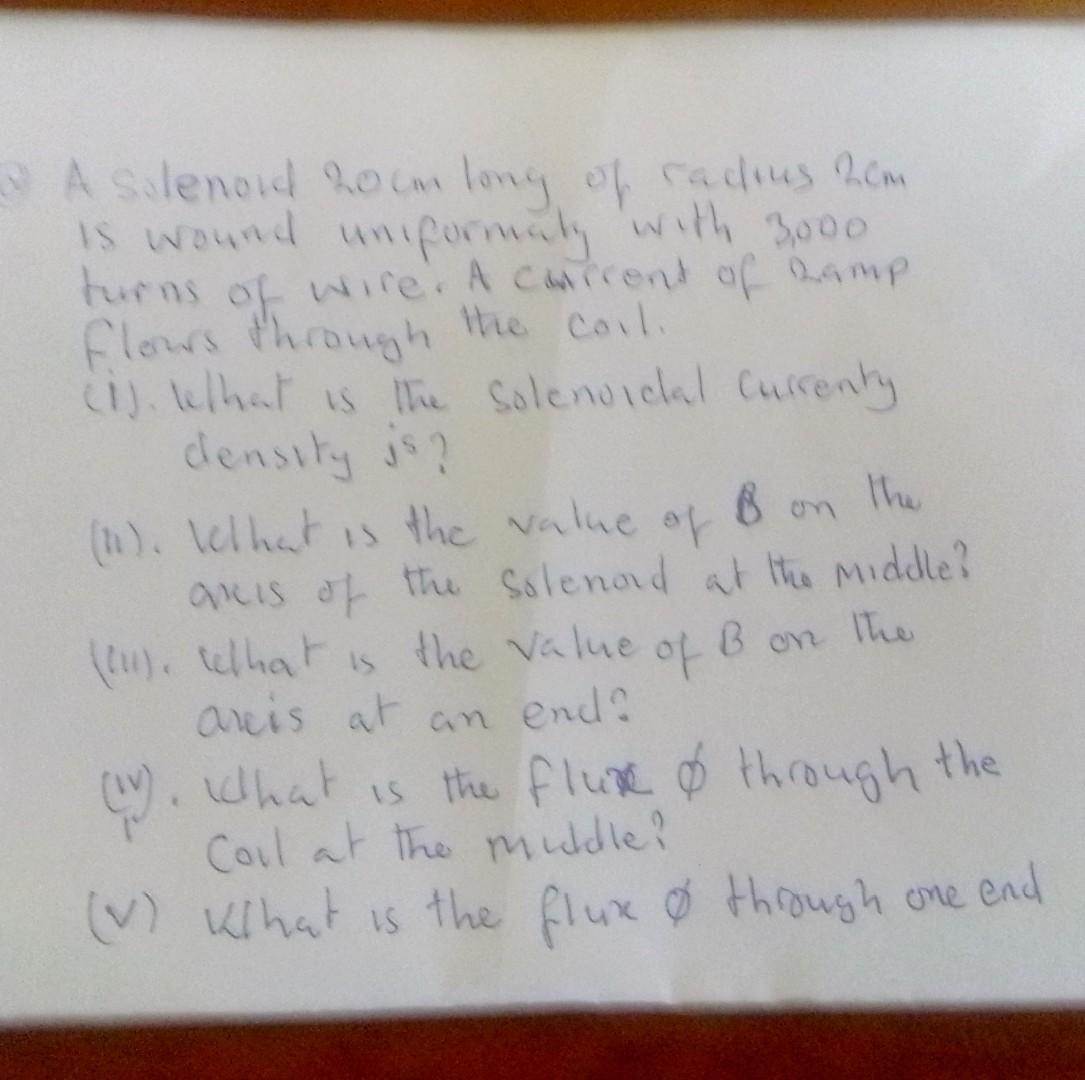 A Solenoid 20cm long of radius 2cm
is wound uniformaly with 3,000
turns of wire. A current of 2amp
flows through the coil.
(i). What is the Solenoidal Currenty
density js?
(ii). What is the value of B on the
axis of the Solenoid at the middle?
(iii). What is the value of B on the
axis at an end?
(iv). What is the flux ϕ through the
Coil at the middle?
(v) What is the flux ϕ through one end